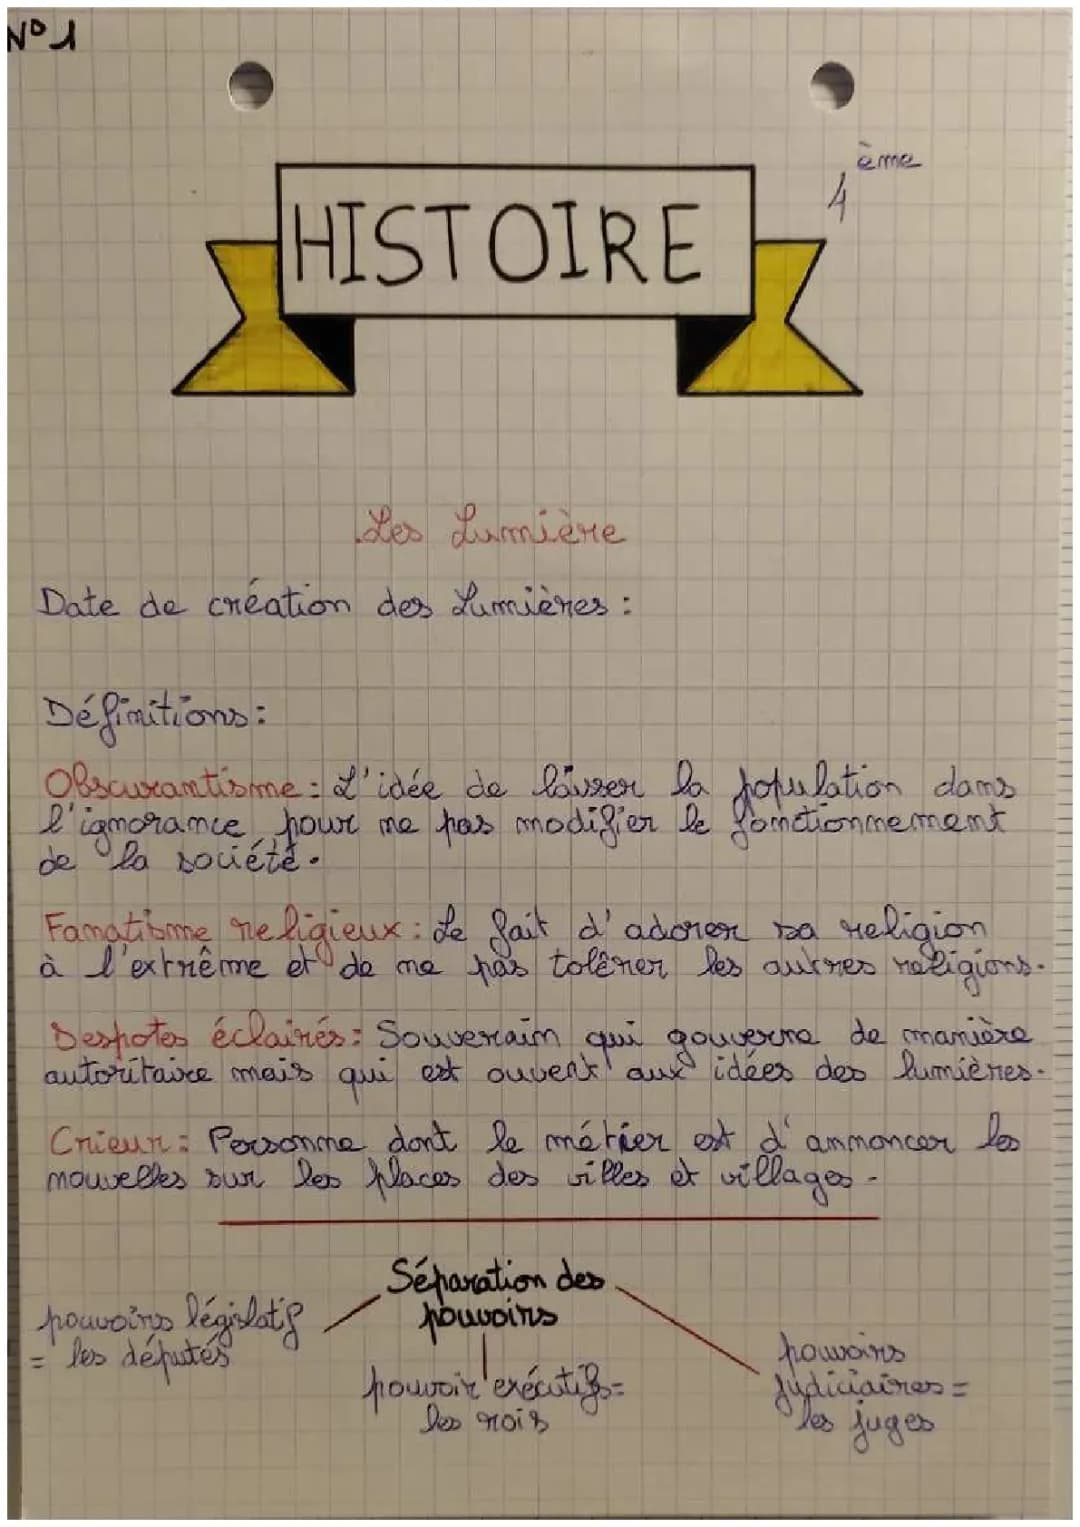 N°1
4ème
HISTOIRE
Les Lumière
Date de création des Lumières :
Définitions :
Obscurantisme : L'idée de laisser la population dans
l'ignorance pour ne pas modifier le fonctionnement
de la société.
Fanatisme religieux : Le fait d'adorer sa religion
à l'extrême et de ne pas tolérer les autres religions.
Despotes éclairés : Souverain qui gouverne de manière
autoritaire mais qui est ouvert aux idées des lumières.
Crieur : Personne dont le métier est d'annoncer les
nouvelles sur les places des villes et villages.
Séparation des
pouvoirs
pouvoirs législatif
= les députés
pouvoir exécutifs =
les rois
pouvoirs
judiciaires =
les juges